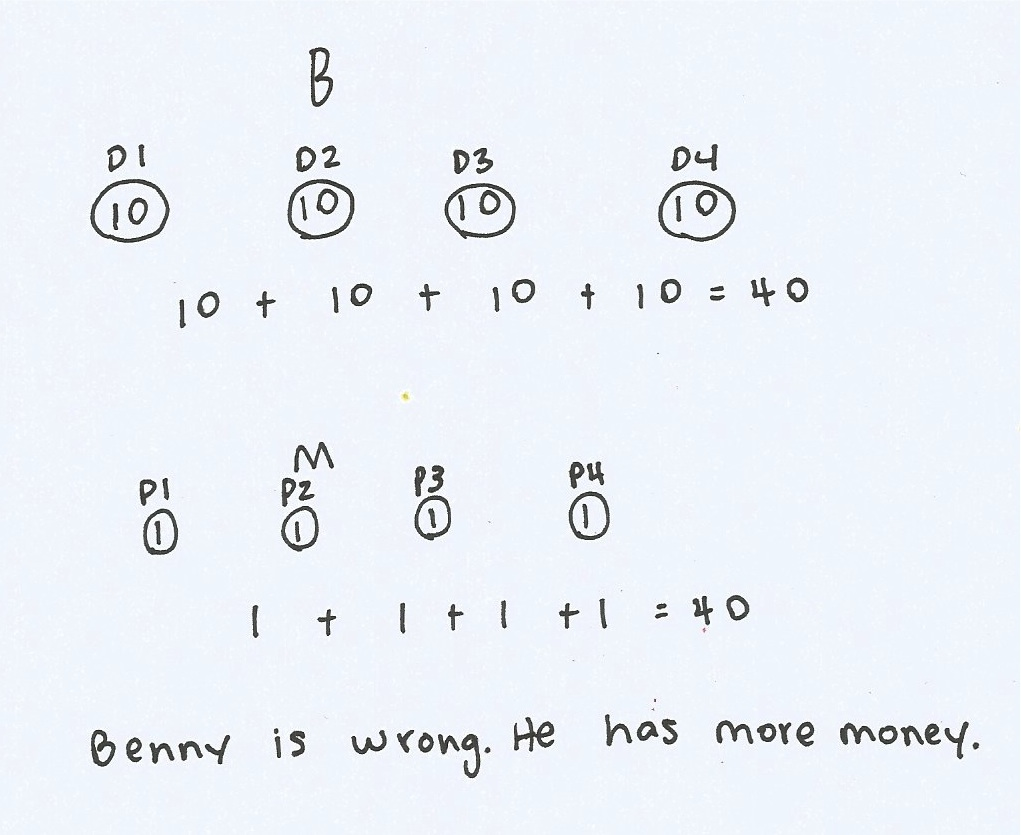 B
D1 D2 D3 D4
10 10 10 10
10 + 10 + 10 + 10 = 40
M
P1 P2 P3 P4
1 1 1 1
1 + 1 + 1 + 1 = 40
Benny is wrong. He has more money.